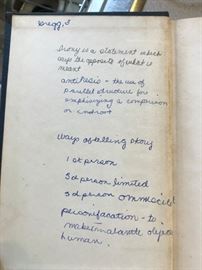 Gregg, S
Irony is a statement which
says the opposite of what is
meant
antithesis - the use of
parallel structure for
emphasizing a comparison
or contrast
Ways of telling story
1st person
3rd person limited
3rd person omniscient
personifacation - to
make inanimate objects
human.